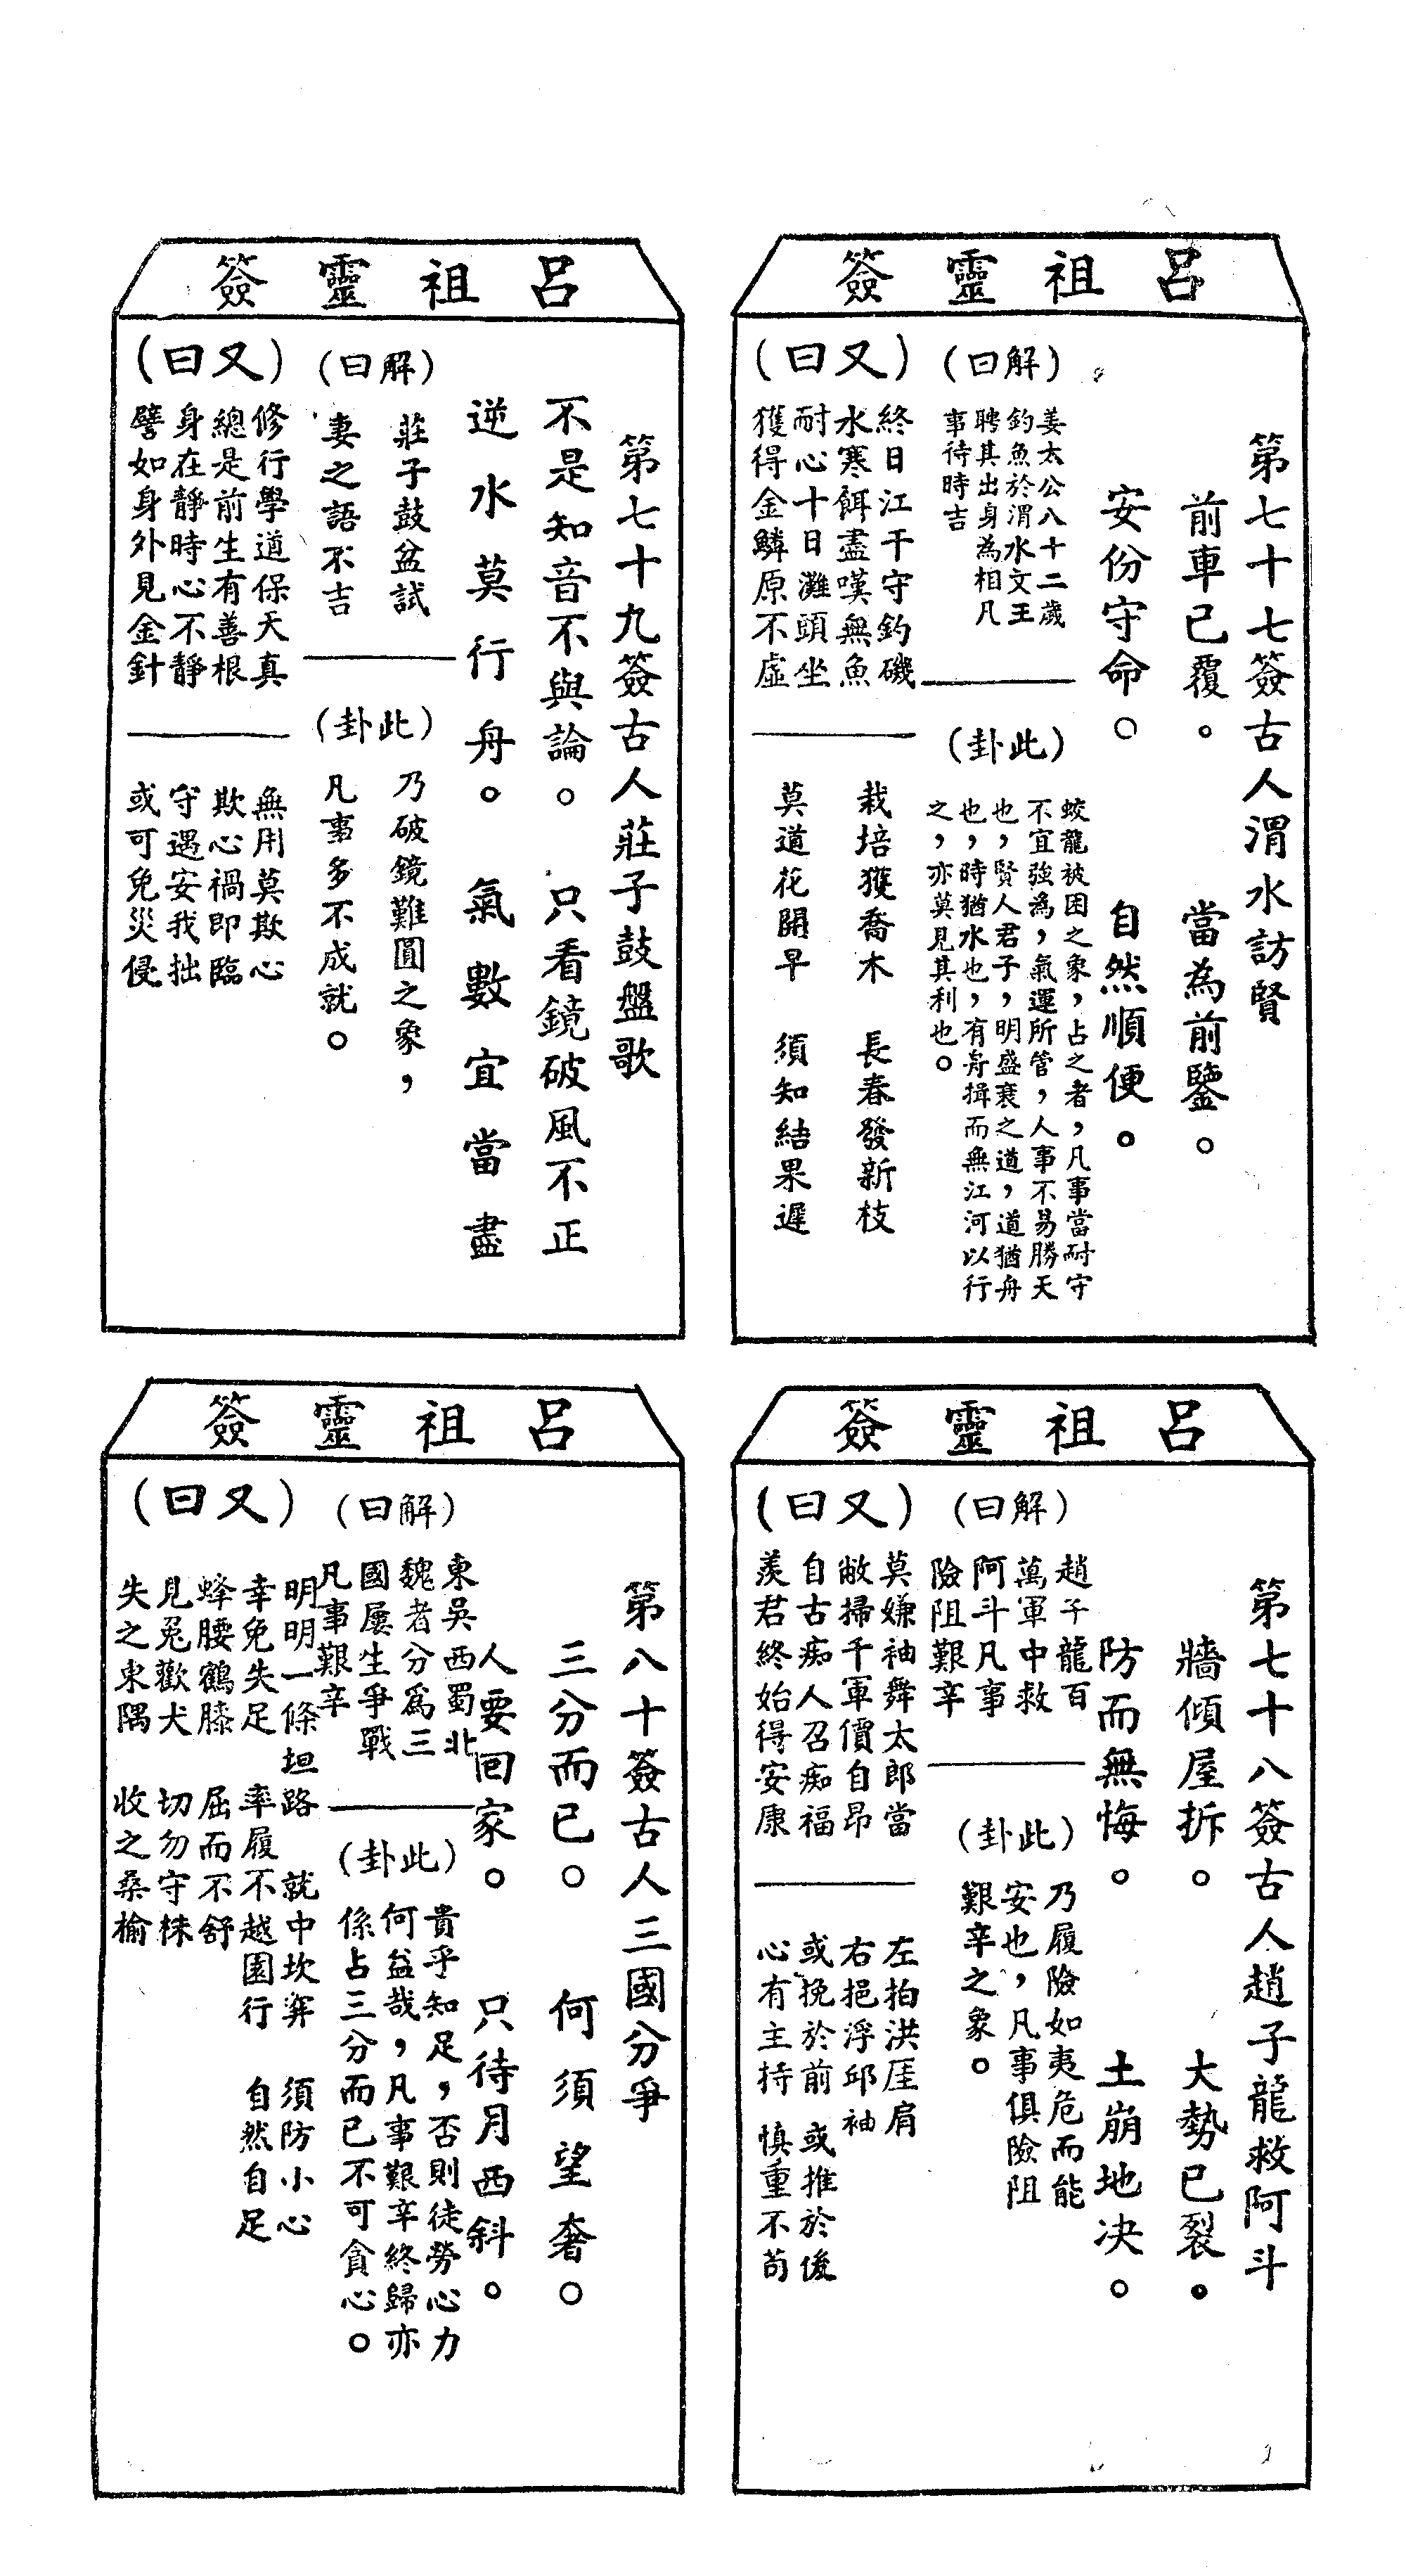 呂祖靈簽
第七十七簽古人渭水訪賢
前車已覆。當為前鑒。
安份守命。自然順便。
(解曰)
姜太公八十二歲
釣魚於渭水文王
聘其出身為相凡
事待時吉
(此卦)
蛟龍被困之象，占之者，凡事當耐守
不宜強為，氣運所管，人事不易勝天
也，賢人君子，明盛衰之道，道猶舟
也，時猶水也，有舟揖而無江河以行
之，亦莫見其利也。
(又曰)
終日江干守釣磯
水寒餌盡嘆無魚
耐心十日灘頭坐
獲得金鱗原不虛
栽培獲喬木 長春發新枝
莫道花開早 須知結果遲
呂祖靈簽
第七十八簽古人趙子龍救阿斗
牆傾屋拆。大勢已裂。
防而無悔。土崩地決。
(解曰)
趙子龍百
萬軍中救
阿斗凡事
險阻艱辛
(此卦)
乃履險如夷危而能
安也，凡事俱險阻
艱辛之象。
(又曰)
莫嫌袖舞太郎當
敝掃千軍價自昂
自古痴人召痴福
羨君終始得安康
左拍洪厓肩
右挹浮邱袖
或挽於前 或推於後
心有主持 慎重不苟
呂祖靈簽
第七十九簽古人莊子鼓盤歌
不是知音不與論。只看鏡破風不正
逆水莫行舟。氣數宜當盡
(解曰)
莊子鼓盆試
妻之語不吉
(此卦)
乃破鏡難圓之象，
凡事多不成就。
(又曰)
修行學道保天真
總是前生有善根
身在靜時心不靜
譬如身外見金針
無用莫欺心
欺心禍即臨
守遇安我拙
或可免災侵
呂祖靈簽
第八十簽古人三國分爭
三分而已。何須望奢。
人要回家。只待月西斜。
(解曰)
東吳西蜀北
魏者分為三
國屢生爭戰
凡事艱辛
(此卦)
貴乎知足，否則徒勞心力
何益哉，凡事艱辛終歸亦
係占三分而已不可貪心。
(又曰)
明明一條坦路 就中坎穽 須防小心
幸免失足 率履不越園行 自然自足
蜂腰鶴膝 屈而不舒
見兔歡犬 切勿守株
失之東隅 收之桑榆